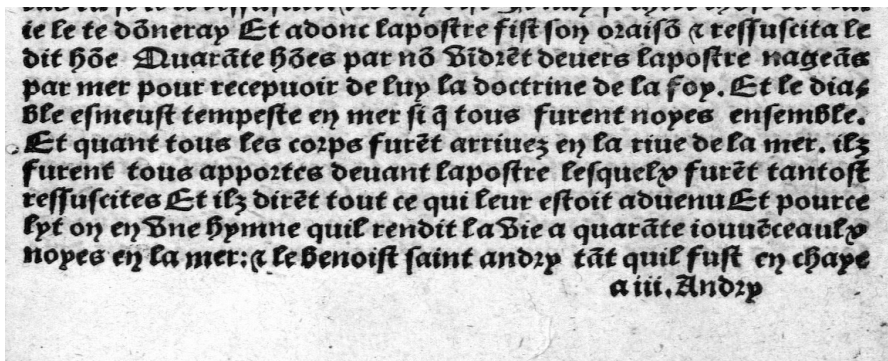 ie le te dōneray Et adonc lapostre fist son oraisō ⁊ ressuscita le
dit hōe Quarāte hōes par nō vīdrēt devers lapostre nageās
par mer pour recepuoir de luy la doctrine de la foy. Et le dia⸗
ble esmeust tempeste en mer si q̄ tous furent noyes ensemble.
Et quant tous les corps furēt arriuez en la riue de la mer. ilz
furent tous apportes deuant lapostre lesquelx furēt tantost
ressuscites Et ilz dirēt tout ce qui leur estoit aduenu Et pource
lyt on en vne hymne quil rendit la vie a quarāte iouuēceaulx
noyes en la mer: ⁊ le benoist saint andry tāt quil fust en chaye
a iii. Andry